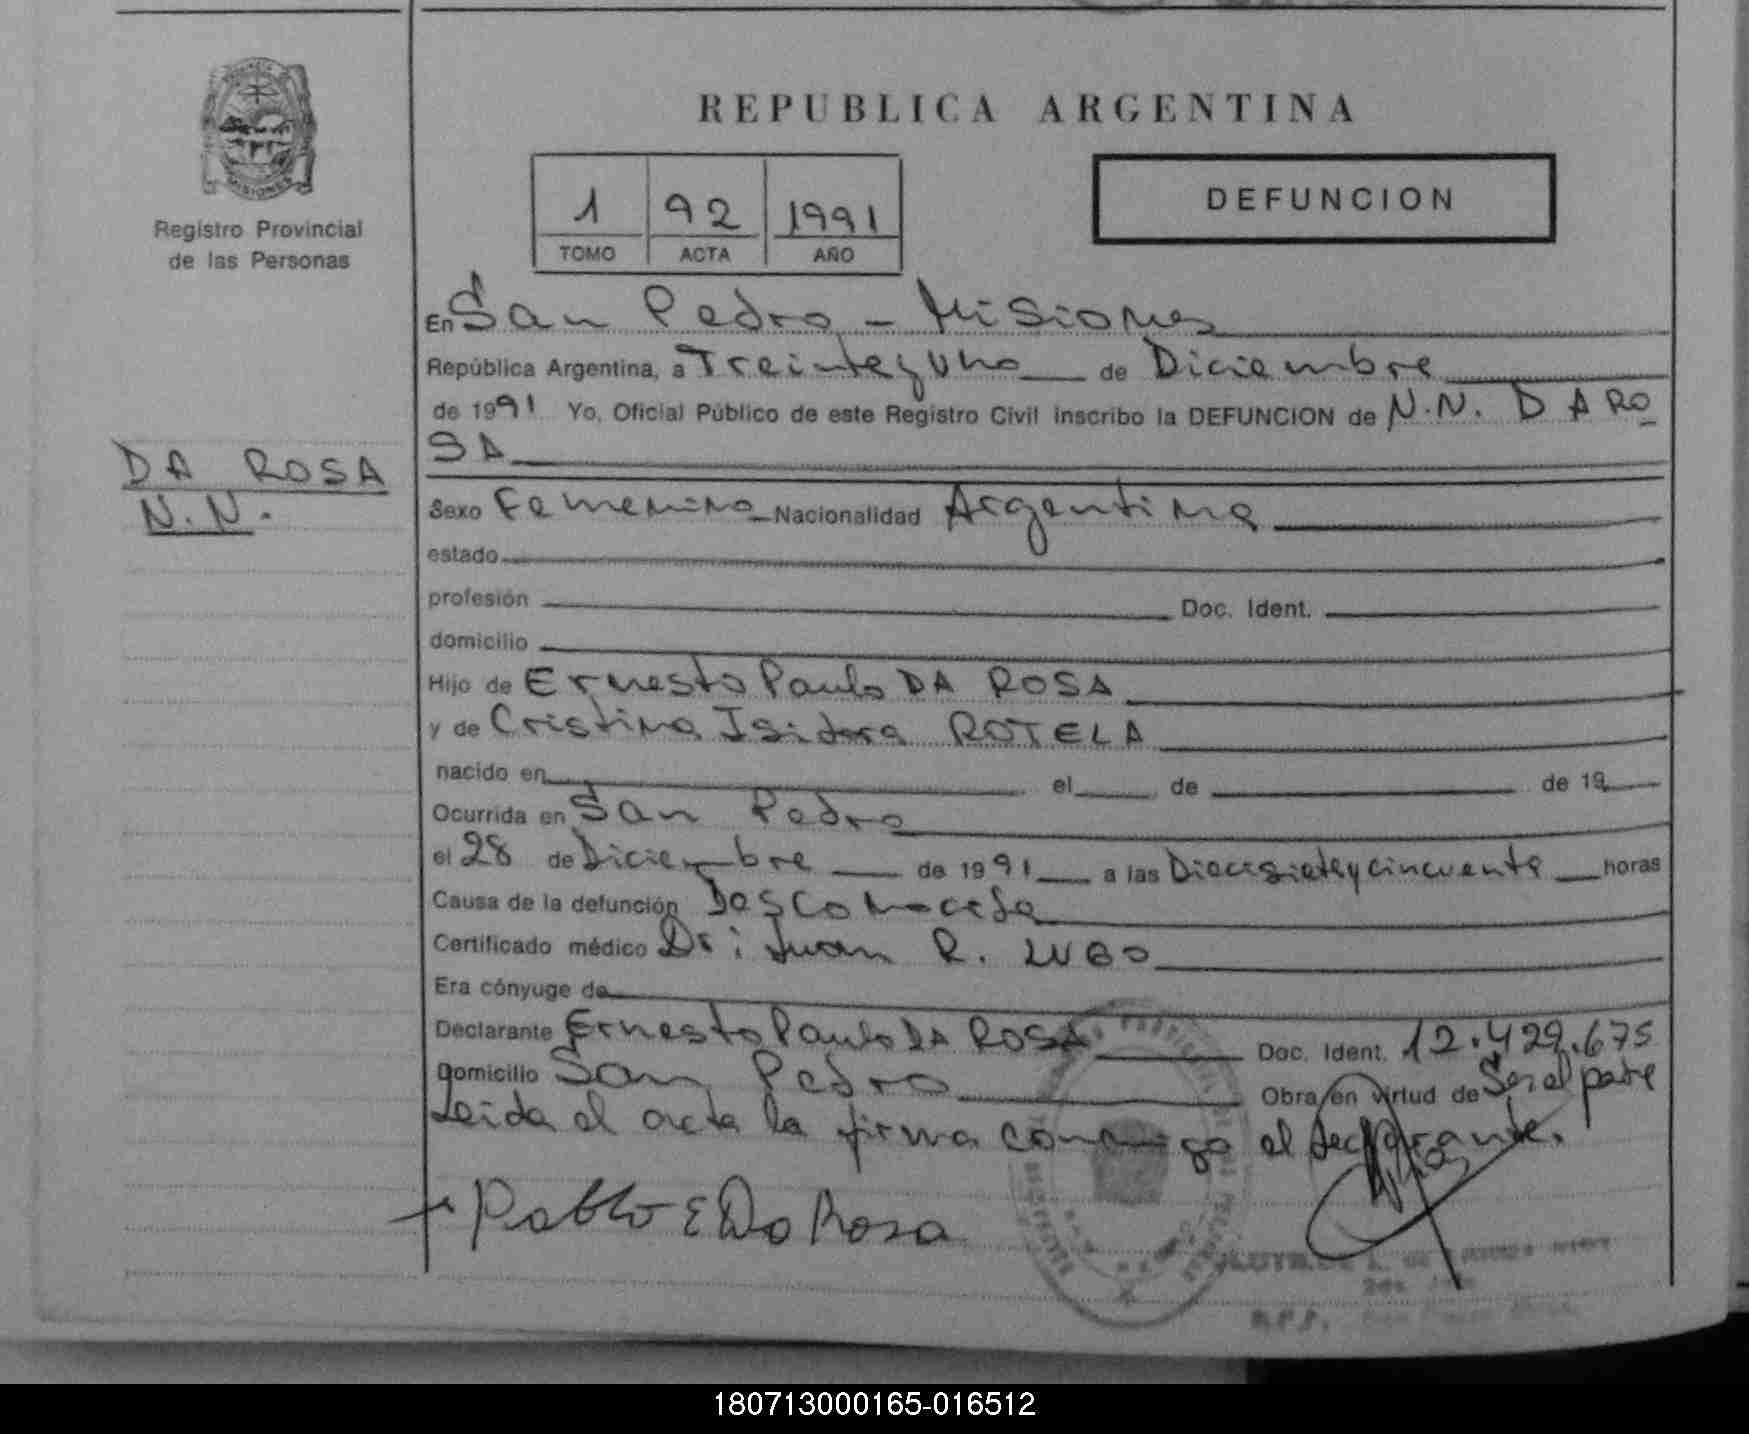 PROVINCIA DE
MISIONES
Registro Provincial
de las Personas
REPUBLICA ARGENTINA
1 92 1991
TOMO ACTA AÑO
DEFUNCION
En San Pedro - Misiones
República Argentina, a Treinta y Uno de Diciembre
de 1991 Yo, Oficial Público de este Registro Civil inscribo la DEFUNCION de N.N. DA RO
SA
DA ROSA
N.N.
Sexo Femenino Nacionalidad Argentina
estado
profesión Doc. Ident.
domicilio
Hijo de Ernesto Paulo DA ROSA
y de Cristina Isidora ROTELA
nacido en el de de 19
Ocurrida en San Pedro
el 28 de Diciembre de 1991 a las Diecisiete y cincuenta horas
Causa de la defunción Desconocida
Certificado médico Dr: Juan R. LUGO
Era cónyuge de
Declarante Ernesto Paulo DA ROSA Doc. Ident. 12.429.675
Domicilio San Pedro Obra en virtud de Ser el padre
Leida el acta la firma conmigo el declarante.
Pablo E Da Rosa
R.P.P.
180713000165-016512